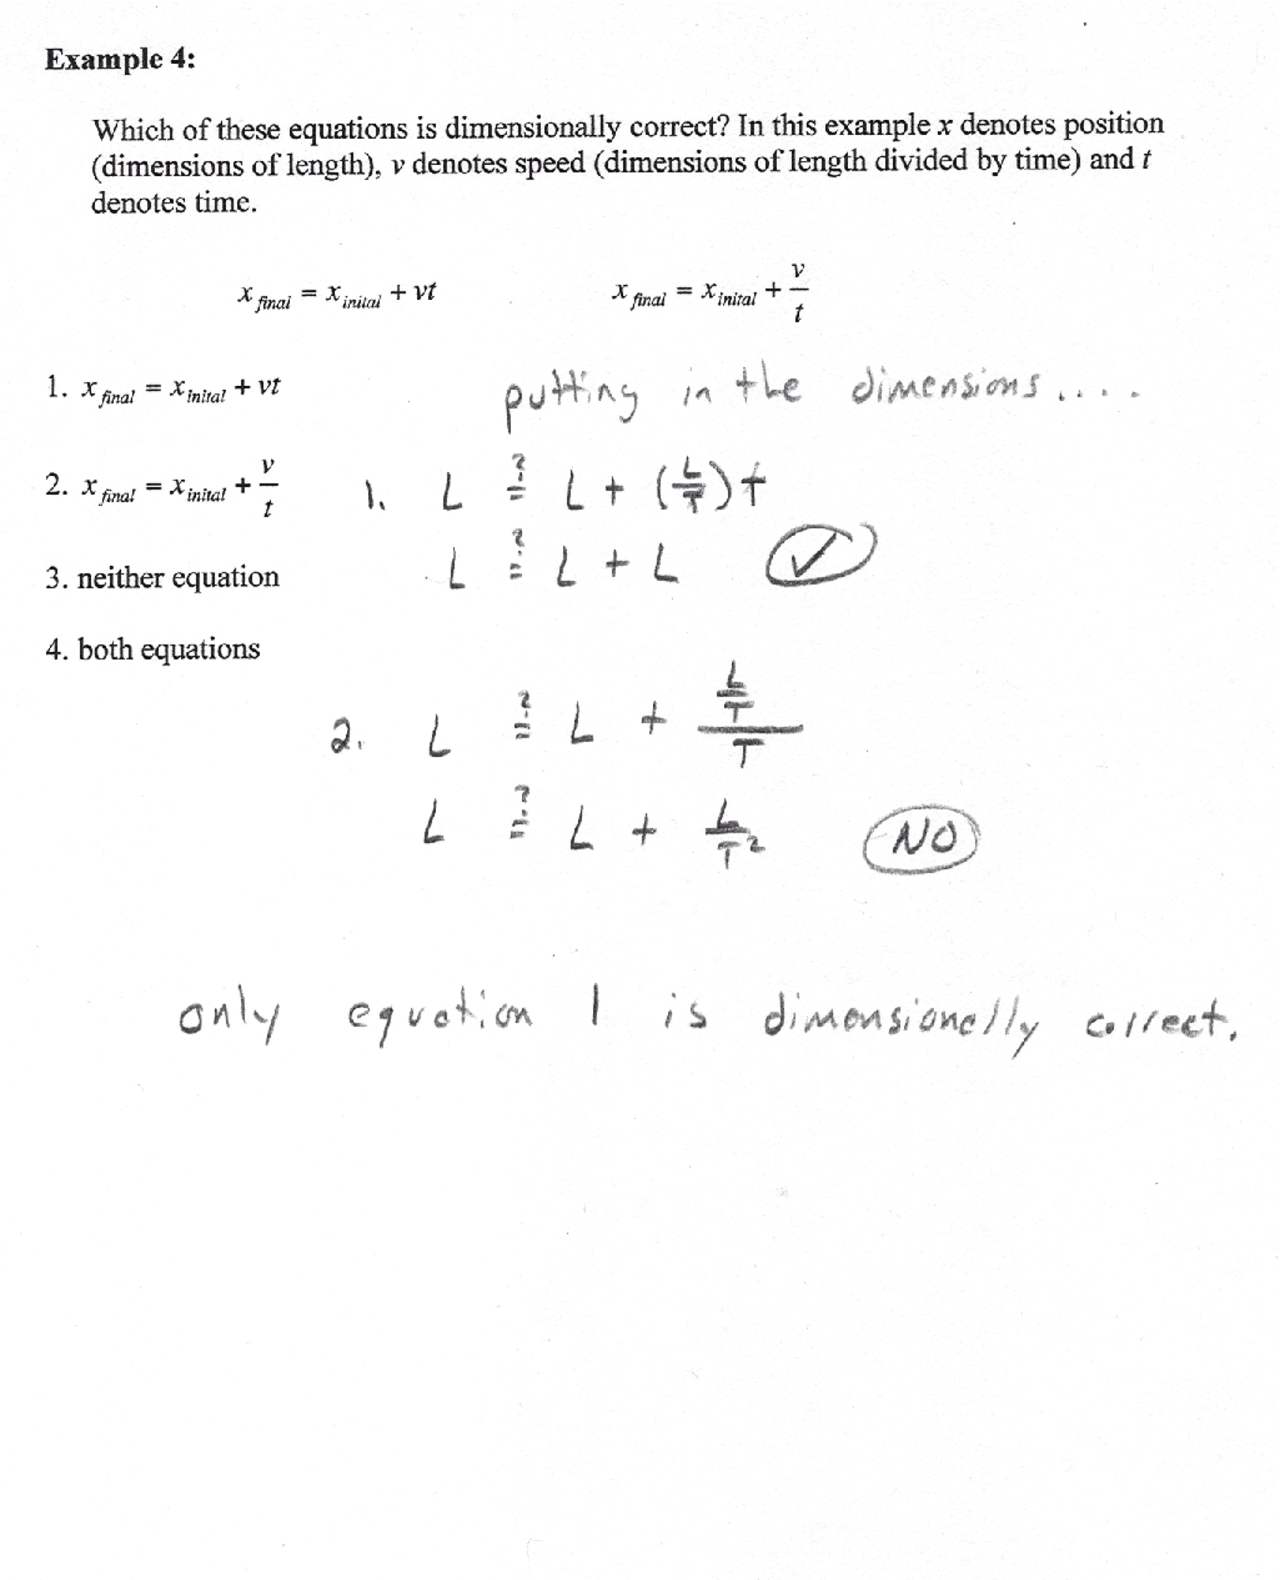 Example 4:
Which of these equations is dimensionally correct? In this example x denotes position
(dimensions of length), v denotes speed (dimensions of length divided by time) and t
denotes time.
x final = x inital + vt    x final = x inital + v/t
1. x final = x inital + vt
putting in the dimensions....
2. x final = x inital + v/t
1. L ?= L + (L/T)t
L ?= L + L ✓
3. neither equation
4. both equations
2. L ?= L + (L/T)/T
L ?= L + L/T² NO
only equation 1 is dimensionally correct.